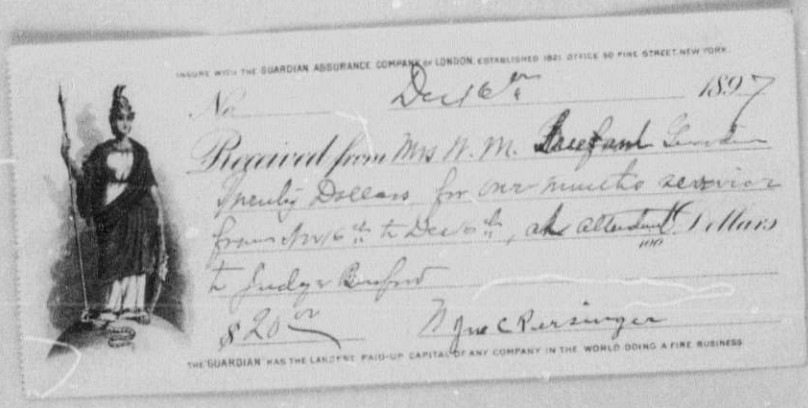 INSURE WITH THE GUARDIAN ASSURANCE COMPANY OF LONDON, ESTABLISHED 1821. OFFICE 50 PINE STREET, NEW YORK.
No. Dec 16th 1897
Received from Mrs W. M.
Twenty Dollars for one months service
from Nov 16th to Dec 16th, as attendant Dollars
100
to Judge Burford
$20 00 Jno C Persinger
THE "GUARDIAN" HAS THE LARGEST PAID-UP CAPITAL OF ANY COMPANY IN THE WORLD DOING A FIRE BUSINESS